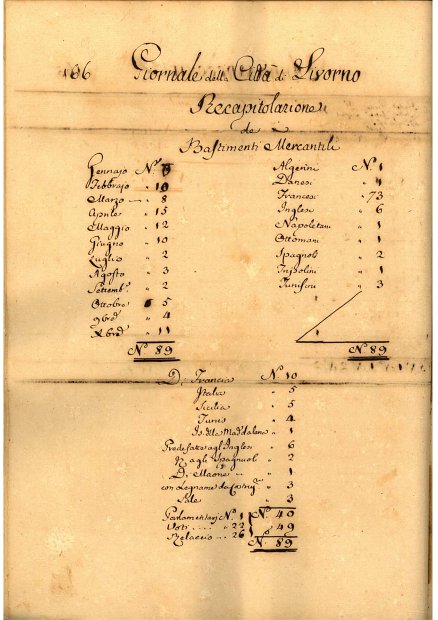 186 Giornale della Città di Livorno
Recapitolazione
de
Bastimenti Mercantili
Gennajo N.º
Febbrajo " 10
Marzo — " 8
Aprile " 15
Maggio " 12
Giugno " 10
Luglio " 2
Agosto " 3
Settembº " 2
Ottobre 5
9bre " 4
Xbre " 11
Nº 89
Algerini Nº 1
Danesi " 1
Francesi " 73
Inglesi " 6
Napoletani " 1
Ottomani " 1
Spagnoli " 2
Tripolini " 1
Tunisini " 3
Nº 89
Di Francia Nº 10
Italia " 5
Sicilia " 5
Tunis " 4
Is. della Maddalena " 1
Prede fatte agl'Inglesi " 6
agli Spagnuoli " 2
Di Maone " 1
con Legname da Costruz.e " 3
Sale " 3
Parlamentarj Nº 1 Nº 40
Voti " 22 " 49
Rilascio " 26
Nº 89